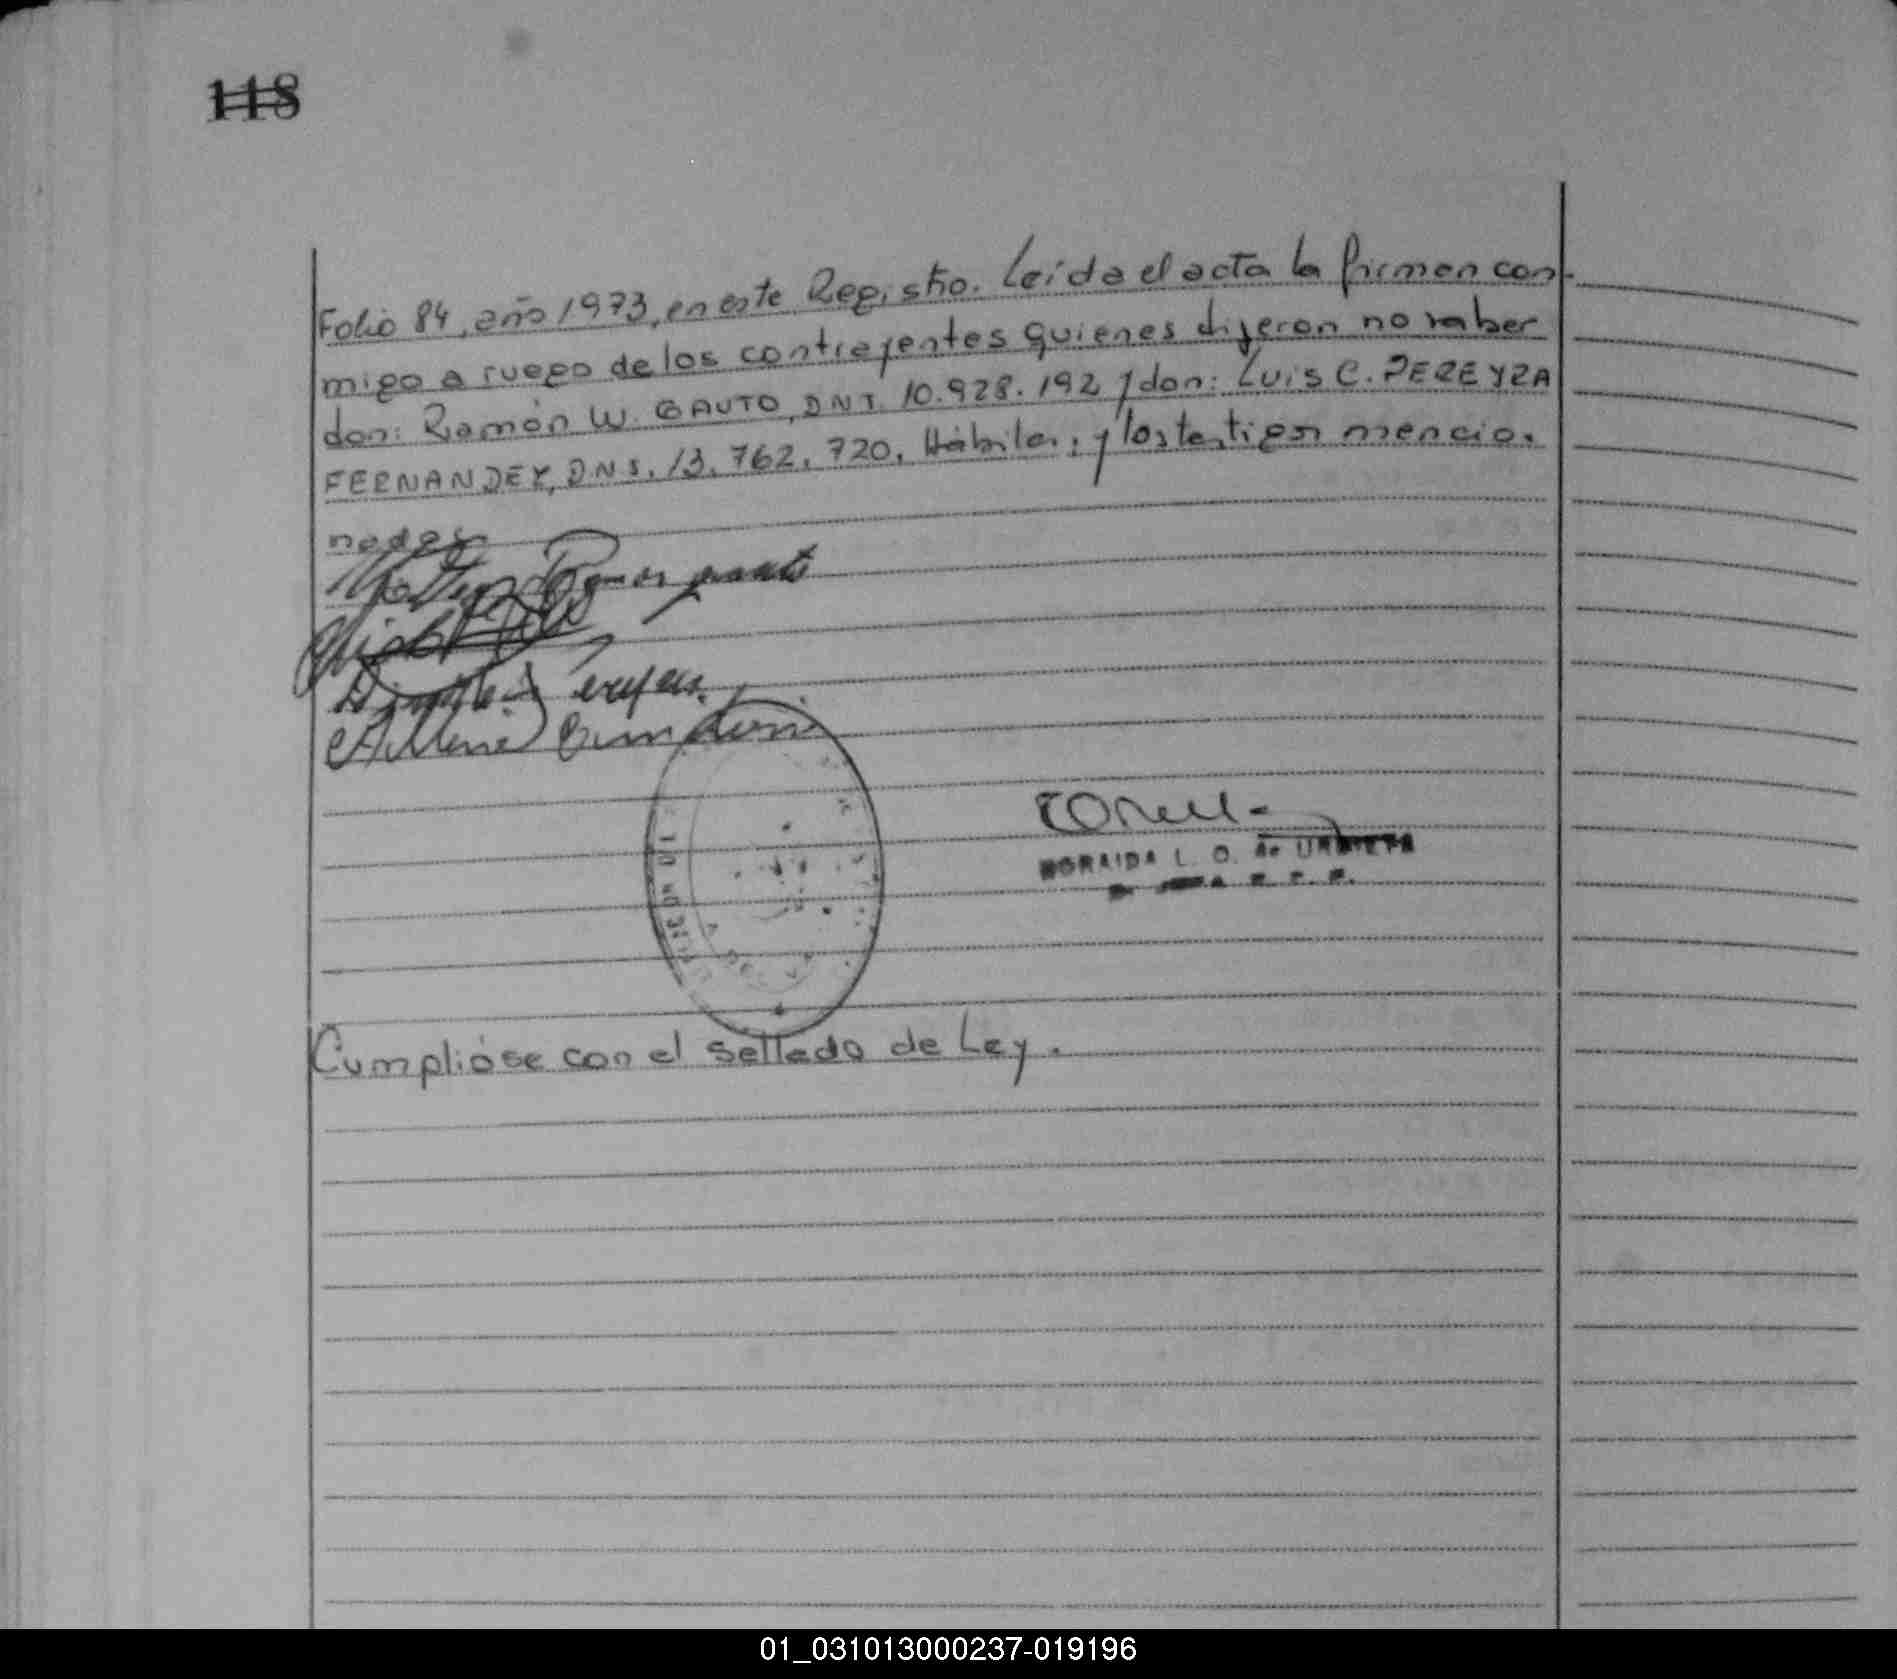 118
Folio 84, año 1973, en este Registro. Leída el acta la firman con-
migo a ruego de los contrayentes quienes dijeron no saber
don: Ramón W. GAUTO, DNI. 10.928.192 y don: Luis C. PEREYRA
FERNANDEZ, DNI. 13.762.720, Hábiles; y los testigos mencio.
nados.
Ramon gauto
NORAIDA L. O. de URBIETA
Cumplióse con el sellado de Ley.
01_031013000237-019196